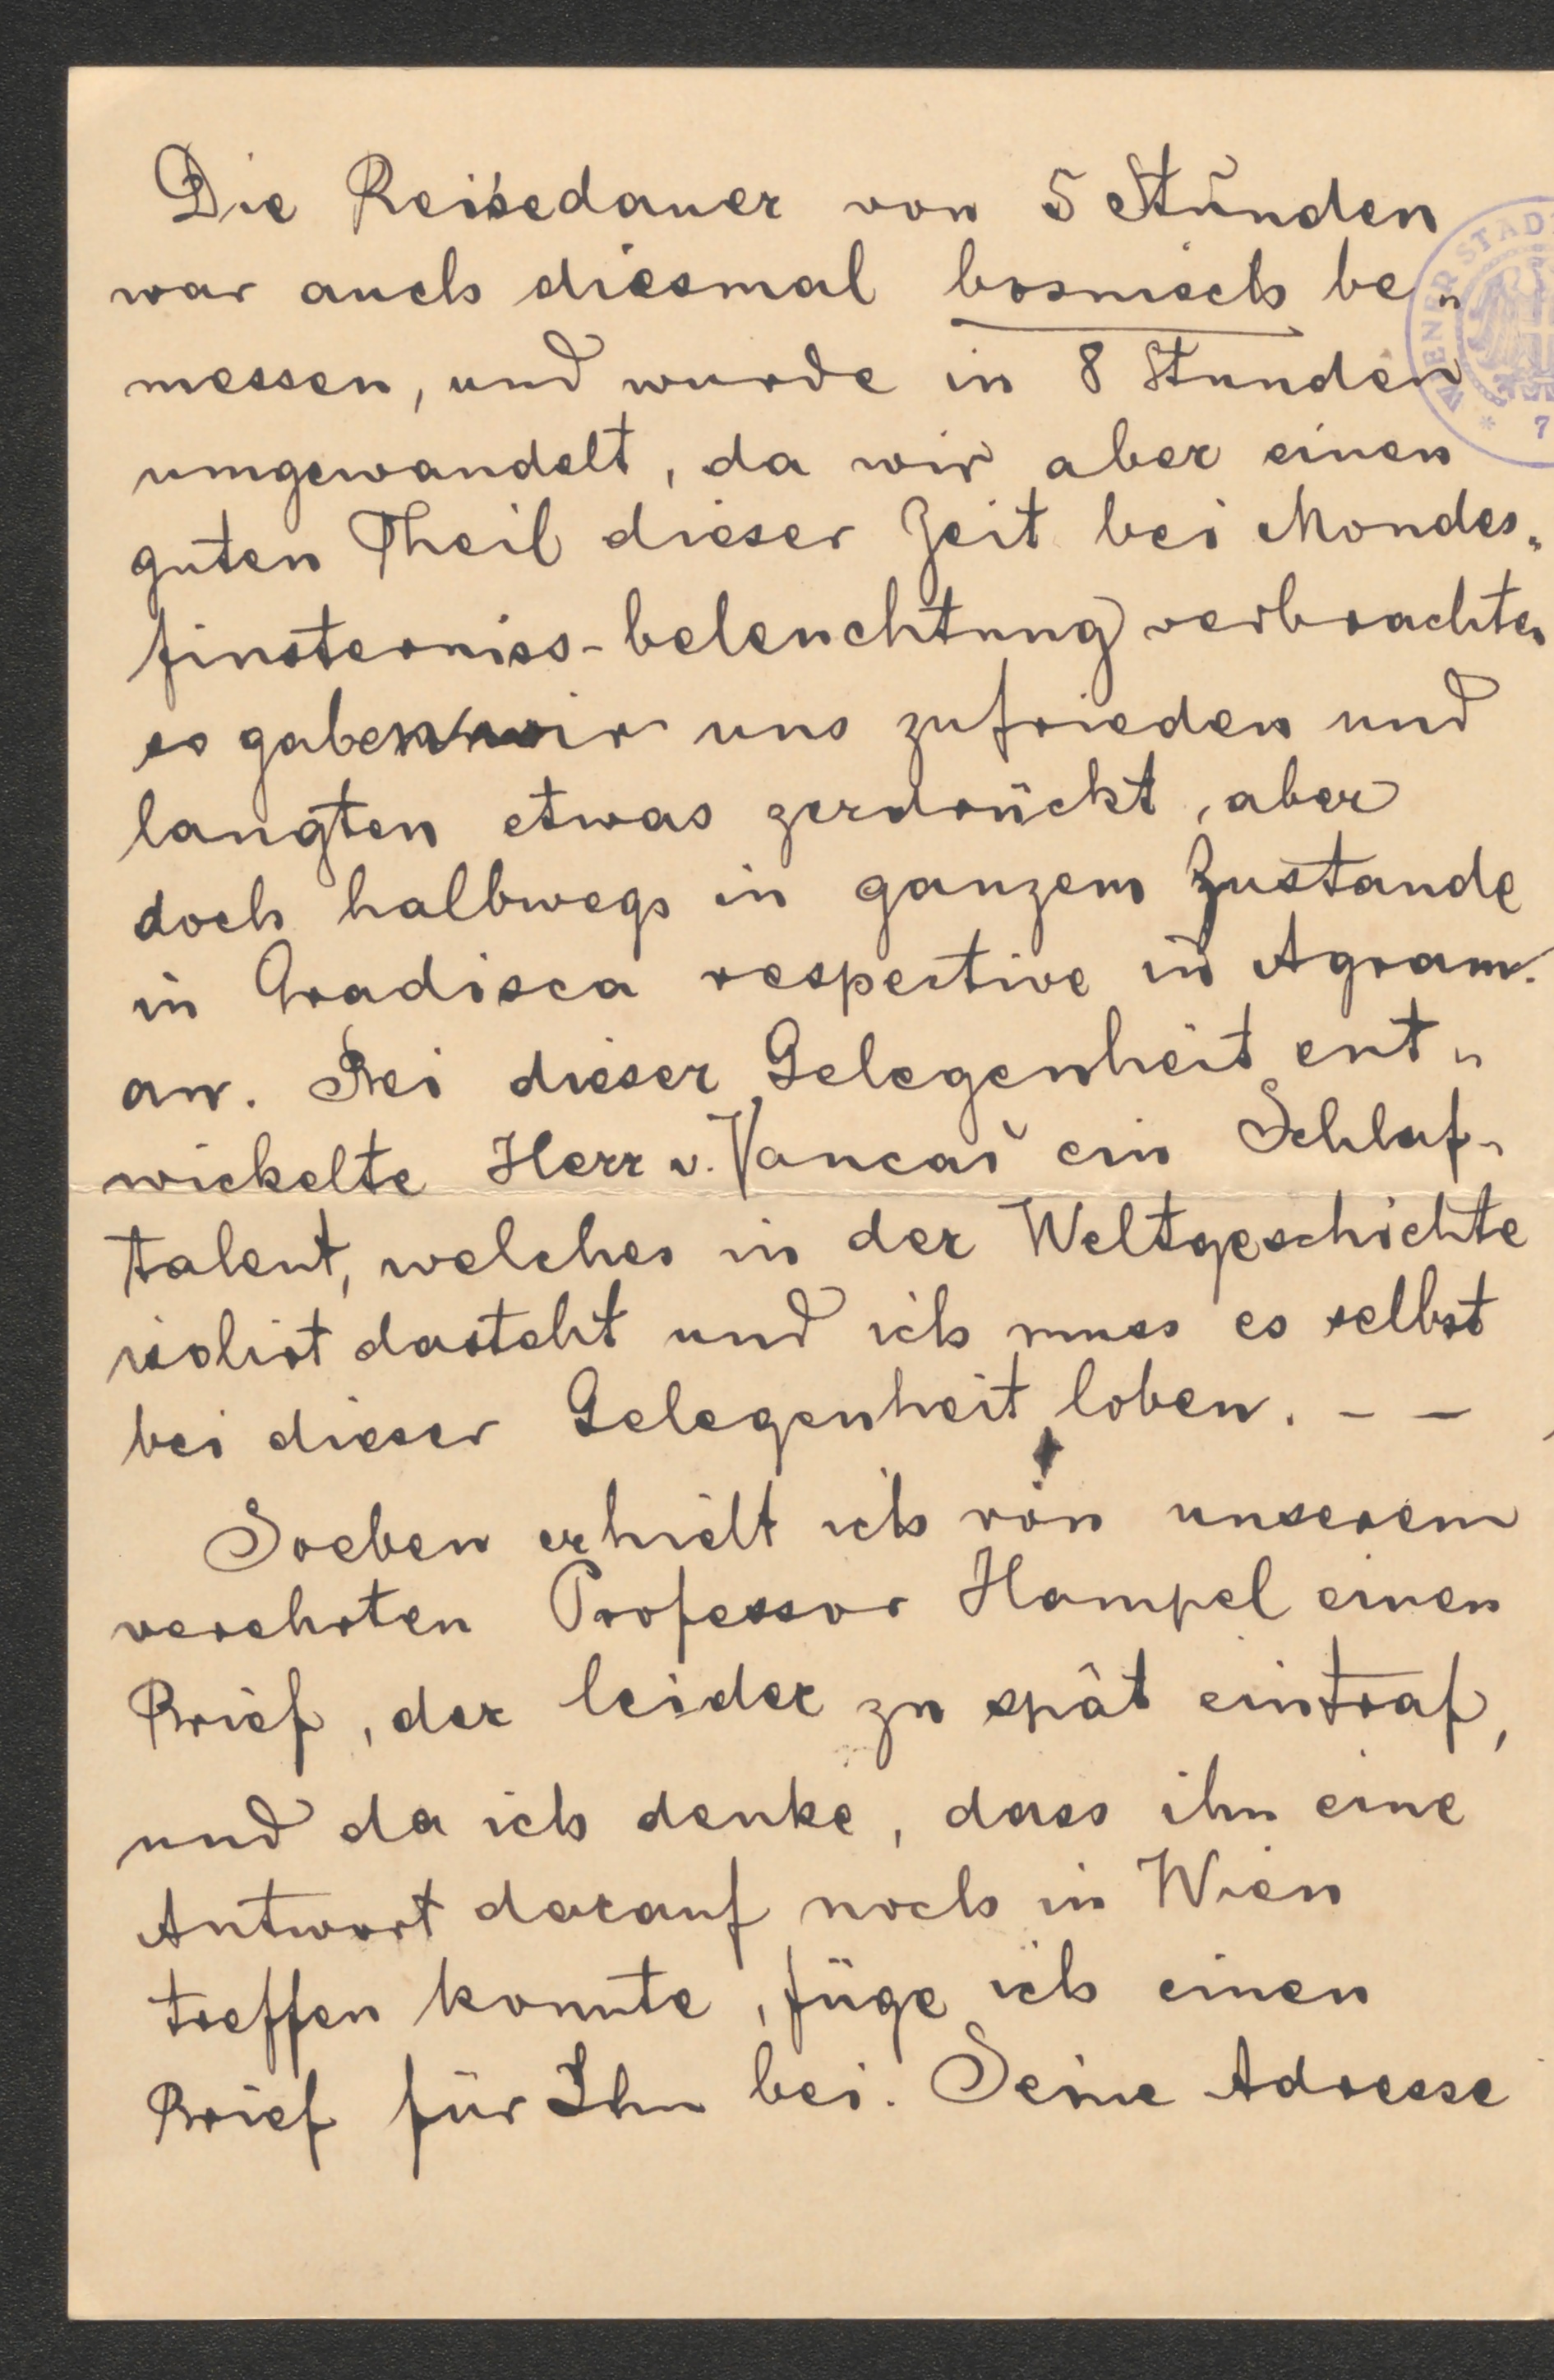 Die Reisedauer von 5 Stunden
war auch diesmal bosnisch be„
messen, und wurde in 8 Stunden
umgewandelt, da wir aber einen
guten Theil dieser Zeit bei Mondes„
finsterniss-beleuchtung verbrachten
so gaben wir uns zufrieden und
langten etwas zerdrückt, aber
doch halbwegs in ganzem Zustande
in Gradisca respective in Agram
an. Bei dieser Gelegenheit ent„
wickelte Herr v. Vancaš ein Schlaf„
talent, welches in der Weltgeschichte
isolirt dasteht und ich muss es selbst
bei dieser Gelegenheit loben. – –
Soeben erhielt ich von unserem
verehrten Professor Hampel einen
Brief, der leider zu spät eintraf,
und da ich denke, dass ihn eine
Antwort darauf noch in Wien
treffen konnte, füge ich einen
Brief für Ihn bei. Seine Adresse
WIENER STAD
7